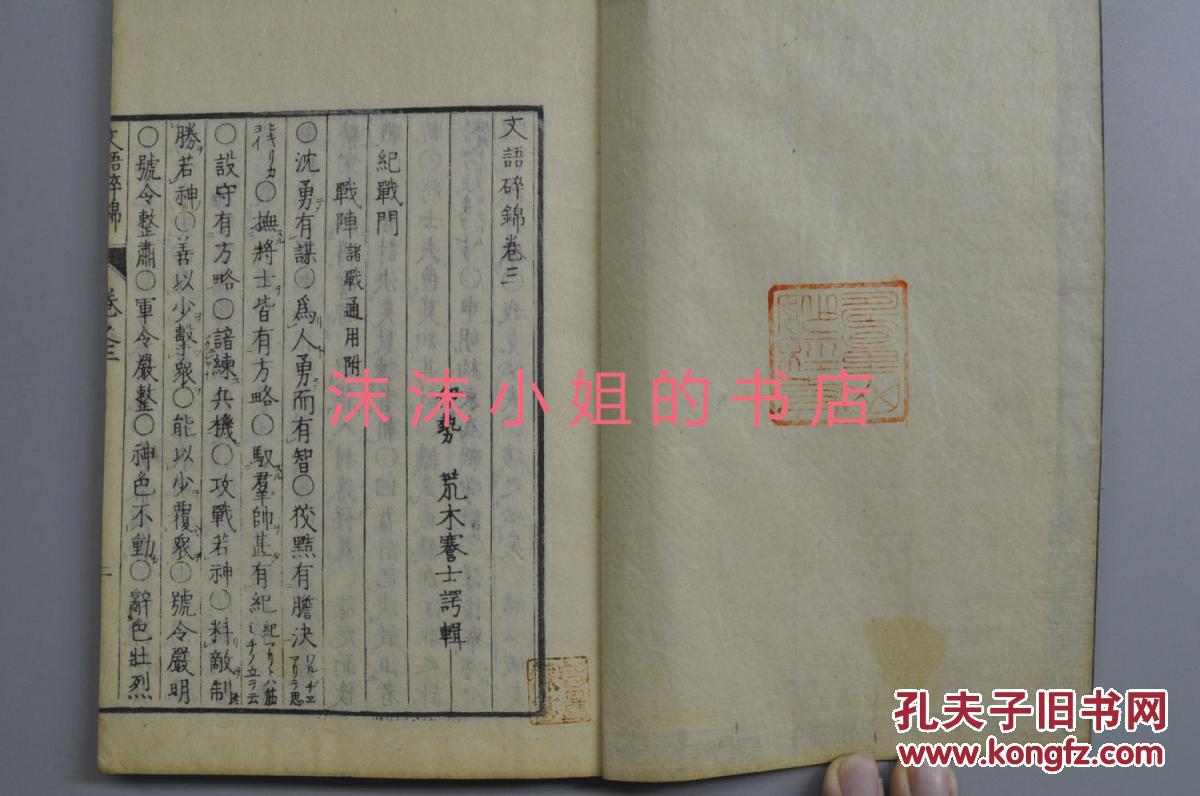 文語碎錦卷三
勢　荒木蹇士諤輯
紀戰門
戰陣 諸戰通用附
○沈勇有謀○爲人勇而有智○狡黠有膽決
○撫將士皆有方略○馭羣帥甚有紀
○設守有方略○諳練兵機○攻戰若神○料敵制
勝若神○善以少擊衆○能以少覆衆○號令嚴明
○號令整肅○軍令嚴整○神色不動○辭色壯烈
文語碎錦
卷之三
沫沫小姐的书店
孔夫子旧书网
www.kongfz.com